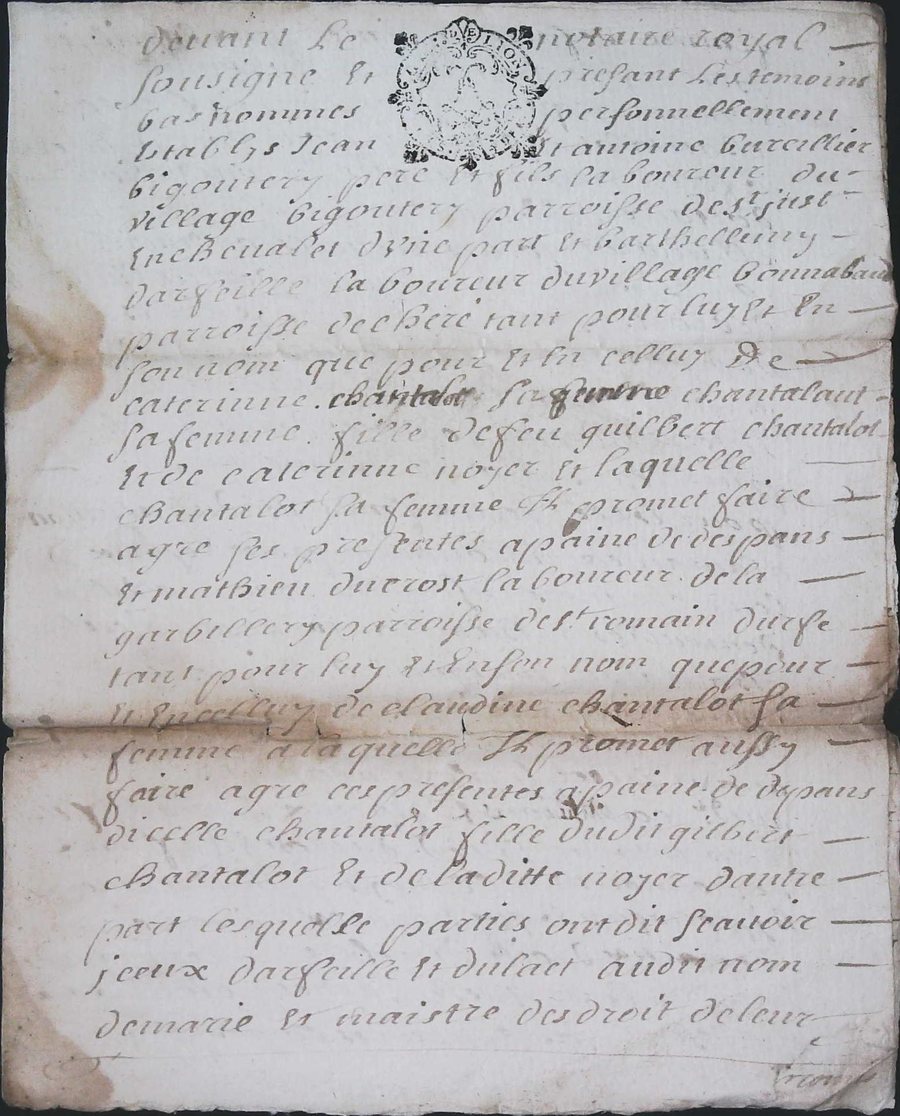 devant Le notaire royal
sousigne Et presant Les temoins
bas nommes personnellement
Establys Jean Et antoine bureillier
bigoutery pere Et fils laboureur du
village bigoutery parroisse de st just
En chevalet d'une part Et barthellemy
darfeille laboureur du village bonnabaud
parroisse de cheré tant pour luy Et En
son nom que pour Et En celluy De
caterinne chantalot sa femme chantalaut
sa femme fille de feu guilbert chantalot
Et de caterinne noyer Et laquelle
chantalot sa femme Il promet faire
agre ses presentes a paine de despans
Et mathieu ducrost laboureur de la
garbillery parroisse de st romain durfe
tant pour luy Et En son nom que pour
Et En celluy de claudine chantalot sa
femme a laquelle Il promet aussy
faire agre ces presentes a paine de depans
dicelle chantalot fille dudit gilbert
chantalot Et de laditte noyer dautre
part lesquelle parties ont dit scavoir
jceux darfeille Et audit nom
de marie Et maistre des droit de leur